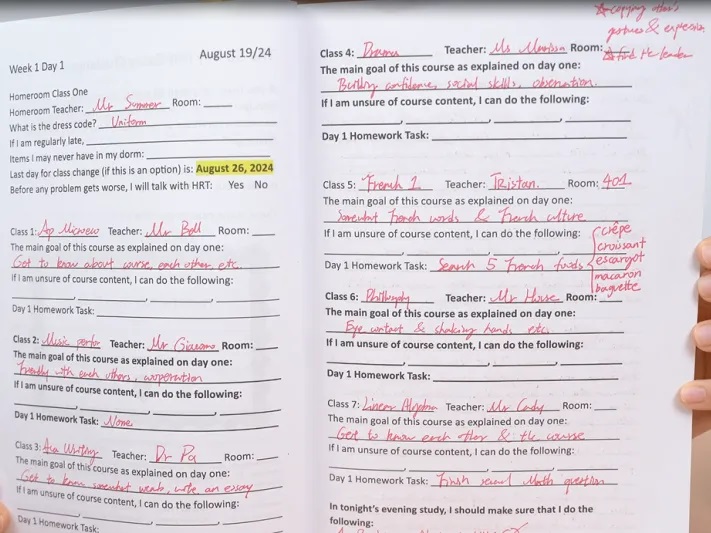 August 19/24
Week 1 Day 1
Homeroom Class One
Homeroom Teacher: Mr Summer Room:
What is the dress code? Uniform
If I am regularly late,
Items I may never have in my dorm:
Last day for class change (if this is an option) is: August 26, 2024
Before any problem gets worse, I will talk with HRT: Yes No
Class 1: Ap Teacher: Mr Bell Room:
The main goal of this course as explained on day one:
Get to know about course, each other etc.
If I am unsure of course content, I can do the following:
Day 1 Homework Task:
Class 2: Music Teacher: Mr Room:
The main goal of this course as explained on day one:
with each others, cooperation
If I am unsure of course content, I can do the following:
Day 1 Homework Task: None
Class 3: Writing Teacher: Dr Pa Room:
The main goal of this course as explained on day one:
Get to know somewhat words, write an essay
If I am unsure of course content, I can do the following:
Day 1 Homework Task:
copying other's
gestures & expression
find the leader
Class 4: Drama Teacher: Ms Room:
The main goal of this course as explained on day one:
confidence, social skills, observation.
If I am unsure of course content, I can do the following:
Day 1 Homework Task:
Class 5: French 1 Teacher: Tristan. Room: 401
The main goal of this course as explained on day one:
Somewhat French words & French culture
If I am unsure of course content, I can do the following:
Day 1 Homework Task: Search 5 French foods
crêpe
croissant
escargot
macaron
baguette
Class 6: Philosophy Teacher: Mr House Room:
The main goal of this course as explained on day one:
Eye contact & shaking hands etc.
If I am unsure of course content, I can do the following:
Day 1 Homework Task:
Class 7: Linear Algebra Teacher: Mr Cody Room:
The main goal of this course as explained on day one:
Get to know each other & the course
If I am unsure of course content, I can do the following:
Day 1 Homework Task: Finish Math question
In tonight's evening study, I should make sure that I do the
following: